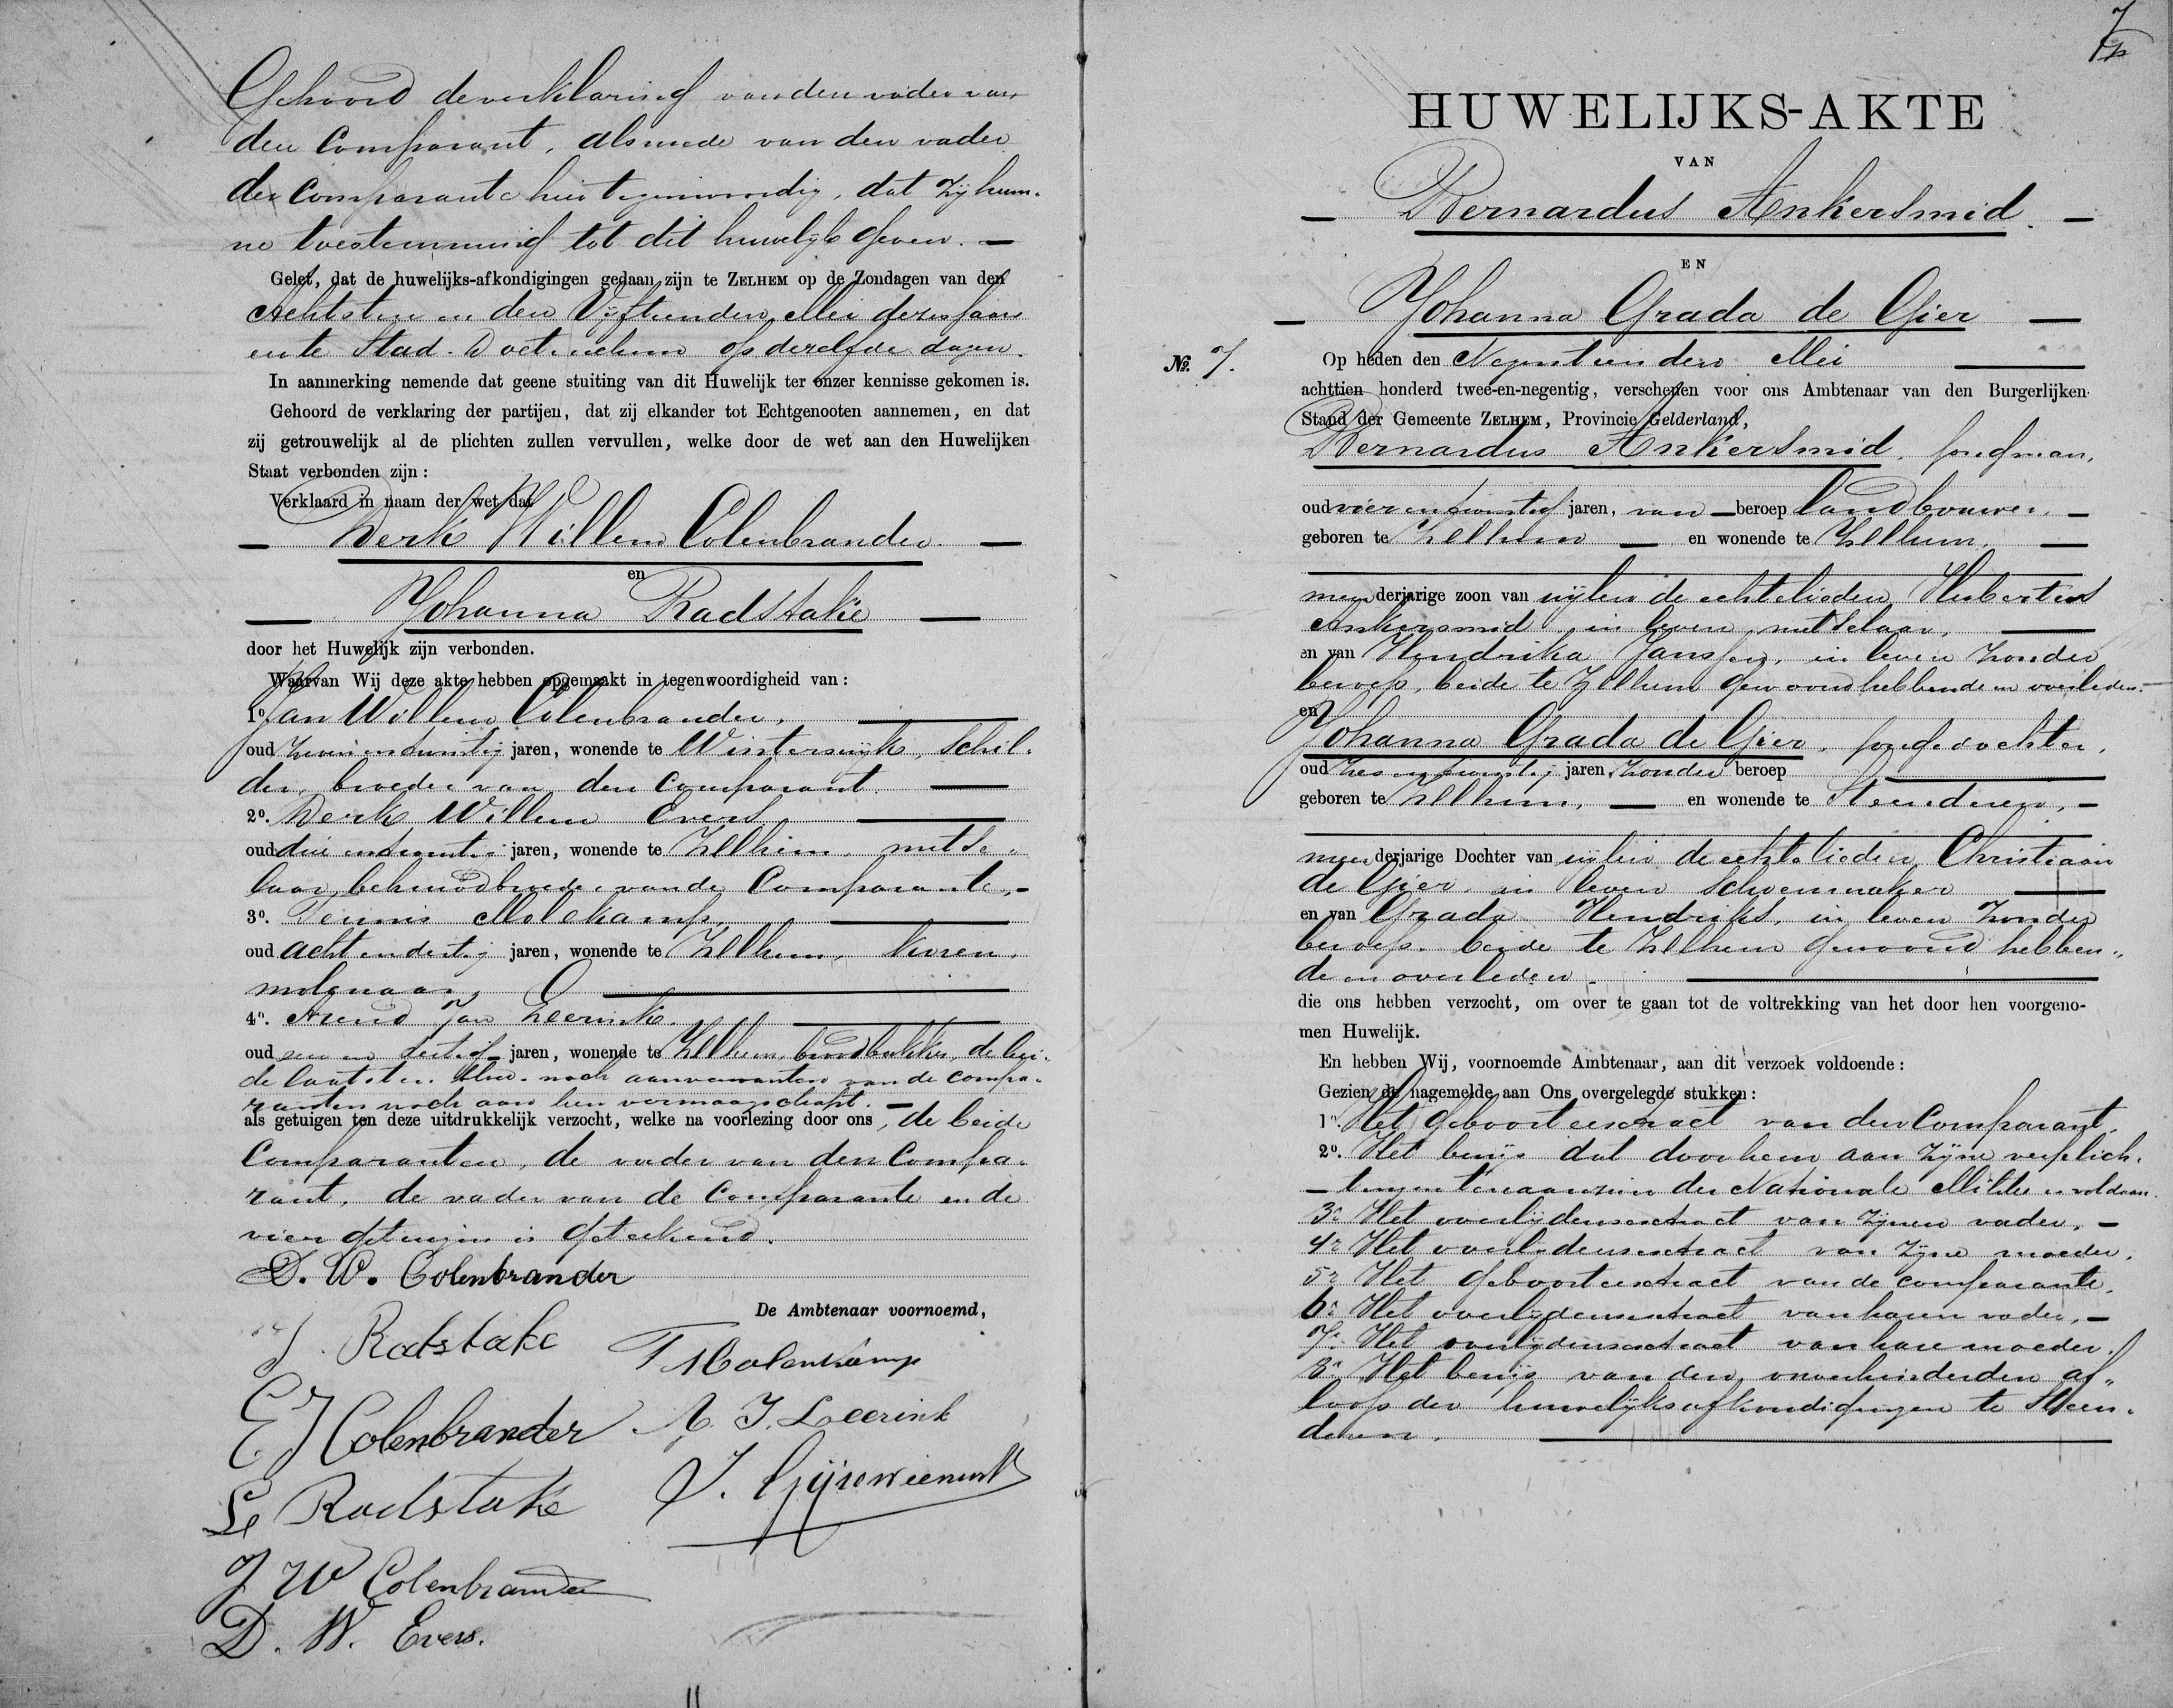 Gehoord de verklaring van den vader van
den Comparant, alsmede van den vader
der Comparante hier tegenwoordig, dat zij hun-
ne toestemming tot dit huwelijk geven. —
Gelet, dat de huwelijks-afkondigingen gedaan zijn te ZELHEM op de Zondagen van den
Achtsten en den Vijftienden Mei dezes jaars
en te Stad-Doetinchem op derzelfde dagen.
In aanmerking nemende dat geene stuiting van dit Huwelijk ter onzer kennisse gekomen is.
Gehoord de verklaring der partijen, dat zij elkander tot Echtgenooten aannemen, en dat
zij getrouwelijk al de plichten zullen vervullen, welke door de wet aan den Huwelijken
Staat verbonden zijn:
Verklaard in naam der wet dat
— Derk Willem Colenbrander —
en
— Johanna Radstake —
door het Huwelijk zijn verbonden.
Waarvan Wij deze akte hebben opgemaakt in tegenwoordigheid van:
1º. Jan Willem Colenbrander, —
oud zeven en twintig jaren, wonende te Winterswijk, Schil-
der, broeder van den Comparant. —
2º. Derk Willem Evers —
oud drie en twintig jaren, wonende te Zelhem, metse-
laar, behuwdbroeder van de Comparante, —
3º. Teunis Molekamp, —
oud acht en dertig jaren, wonende te Zelhem, koren-
molenaar, —
4º. Arend Jan Leerink. —
oud een en dertig jaren, wonende te Zelhem, broodbakker, de bei-
de laatsten bloed- noch aanverwanten van de compa-
ranten noch aan hen vermaagschapt. —
als getuigen ten deze uitdrukkelijk verzocht, welke na voorlezing door ons, de beide
Comparanten, de vader van den Compa-
rant, de vader van de Comparante en de
vier getuigen is geteekend.
D. W. Colenbrander
De Ambtenaar voornoemd,
J. Radstake
T Molenkamp
E J Colenbrander
A. J. Leerink
Radstake
J W Colenbrander
D. W. Evers.
7
HUWELIJKS-AKTE
VAN
— Bernardus Ankersmid. —
EN
— Johanna Grada de Gier —
№. 7.
Op heden den Negentienden Mei —
achttien honderd twee-en-negentig, verschenen voor ons Ambtenaar van den Burgerlijken
Stand der Gemeente ZELHEM, Provincie Gelderland,
Bernardus Ankersmid, jongman,
oud vier en twintig jaren, van — beroep landbouwer, —
geboren te Zelhem — en wonende te Zelhem, —
meerderjarige zoon van wijlen de echtelieden Hubertus
Ankersmid, in leven metselaar, —
en van Hendrika Janssen, in leven zonder
beroep, beide te Zelhem gewoond hebbende en overleden.
en
Johanna Grada de Gier, jongedochter,
oud zes en twintig jaren, zonder beroep —
geboren te Zelhem, — en wonende te Steenderen, —
meerderjarige Dochter van wijlen de echtelieden Christiaan
de Gier, in leven Schoenmaker —
en van Grada Hendriks, in leven zonder
beroep, beide te Zelhem gewoond hebben-
de en overleden. —
die ons hebben verzocht, om over te gaan tot de voltrekking van het door hen voorgeno-
men Huwelijk.
En hebben Wij, voornoemde Ambtenaar, aan dit verzoek voldoende:
Gezien de nagemelde aan Ons overgelegde stukken:
1º. Het geboorteextract van den Comparant.
2º. Het bewijs dat door hem aan zijne verplich-
— tingen ten aanzien der Nationale Militie is voldaan.
3º. Het overlijdensextract van zijnen vader. —
4º. Het overlijdensextract van zijne moeder.
5º. Het geboorteextract van de comparante.
6º. Het overlijdensextract van haren vader, —
7º. Het overlijdensextract van hare moeder.
8º. Het bewijs van den onverhinderden af-
loop der huwelijksafkondigingen te Steen-
deren. —